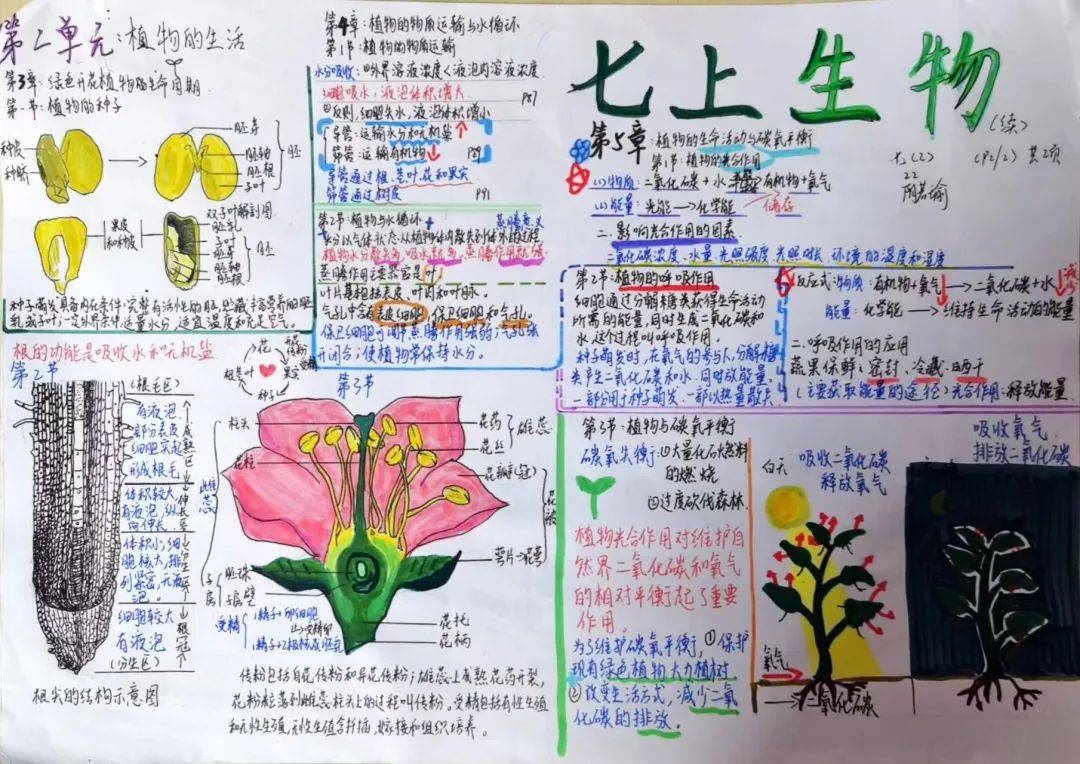 第二单元:植物的生活
第3章:绿色开花植物的生命周期
第一节:植物的种子
种皮
种脐
胚芽
胚轴
胚根
子叶
胚
果皮
和种皮
双子叶解剖图
胚乳
子叶
胚芽
胚轴
胚根
胚
根的功能是吸收水和无机盐
第2节
花
果实
种子
(根毛区)
有液泡,
部分表皮
细胞突起
形成根毛
成熟区
体积较大,
有液泡,纵
向伸长
伸长区
体积小,细
胞核大,排
列紧密,无液
泡。
细胞较大
有液泡
根冠
(分生区)
根尖的结构示意图
第4章:植物的物质运输与水循环
第1节:植物的物质运输
水分吸收:①外界溶液浓度<液泡内溶液浓度
细胞吸水,液泡体积增大
P87
②反则,细胞失水,液泡体积缩小
导管:运输水分和无机盐↑
筛管:运输有机物↓
P89
导管通过根、茎、叶、花和果实
筛管通过树皮
P91
第2节:植物与水循环
水分以气体状态从植物体内散失到体外的过程
蒸腾作用主要器官是叶
叶片结构包括表皮、叶肉和叶脉。
气孔中含有表皮细胞、保卫细胞和气孔。
保卫细胞可调节蒸腾作用强弱;气孔张
开闭合;使植物常保持水分。
第3节
柱头
花柱
雌蕊
子房
胚珠
子房壁
受精
1精子+卵细胞
→受精卵
花药
花丝
雄蕊
花瓣(冠)
花被
萼片→花萼
花托
花柄
传粉包括自花传粉和异花传粉;雄蕊上成熟花药开裂,
花粉粒落到雌蕊柱头上的过程叫传粉。受精包括有性生殖
和无性生殖,无性生殖含扦插、嫁接和组织培养。
七上生物
(续)
第5章:植物的生命活动与碳氧平衡
第1节:植物的光合作用
七(2)
(P2/2)共2页
22
(1)物质:二氧化碳+水→有机物+氧气
(2)能量:光能→化学能
储存
二.影响光合作用的因素.
二氧化碳浓度、水量、光照强度、光照时长、环境的温度和湿度
第2节:植物的呼吸作用
细胞通过分解糖类获得生命活动
所需的能量,同时生成二氧化碳和
水,这个过程叫呼吸作用。
种子萌发时,在氧气的参与下,分解糖
类产生二氧化碳和水.同时放能量.
一部分用于种子萌发,一部以热量散失
反应式:物质:有机物+氧气→二氧化碳+水
能量:化学能→维持生命活动的能量
二.呼吸作用的应用
蔬果保鲜:密封、冷藏、晒干
(主要获取能量的途径)光合作用:释放能量
第3节:植物与碳氧平衡
碳氧失衡:①大量化石燃料
的燃烧
②过度砍伐森林.
植物光合作用对维护自
然界二氧化碳和氧气
的相对平衡起了重要
作用。
为了维护碳氧平衡,①保护
现有绿色植物大力植树
②改变生活方式,减少二氧
化碳的排放。
白天
吸收二氧化碳
释放氧气
吸收氧气
排放二氧化碳
氧气
→二氧化碳